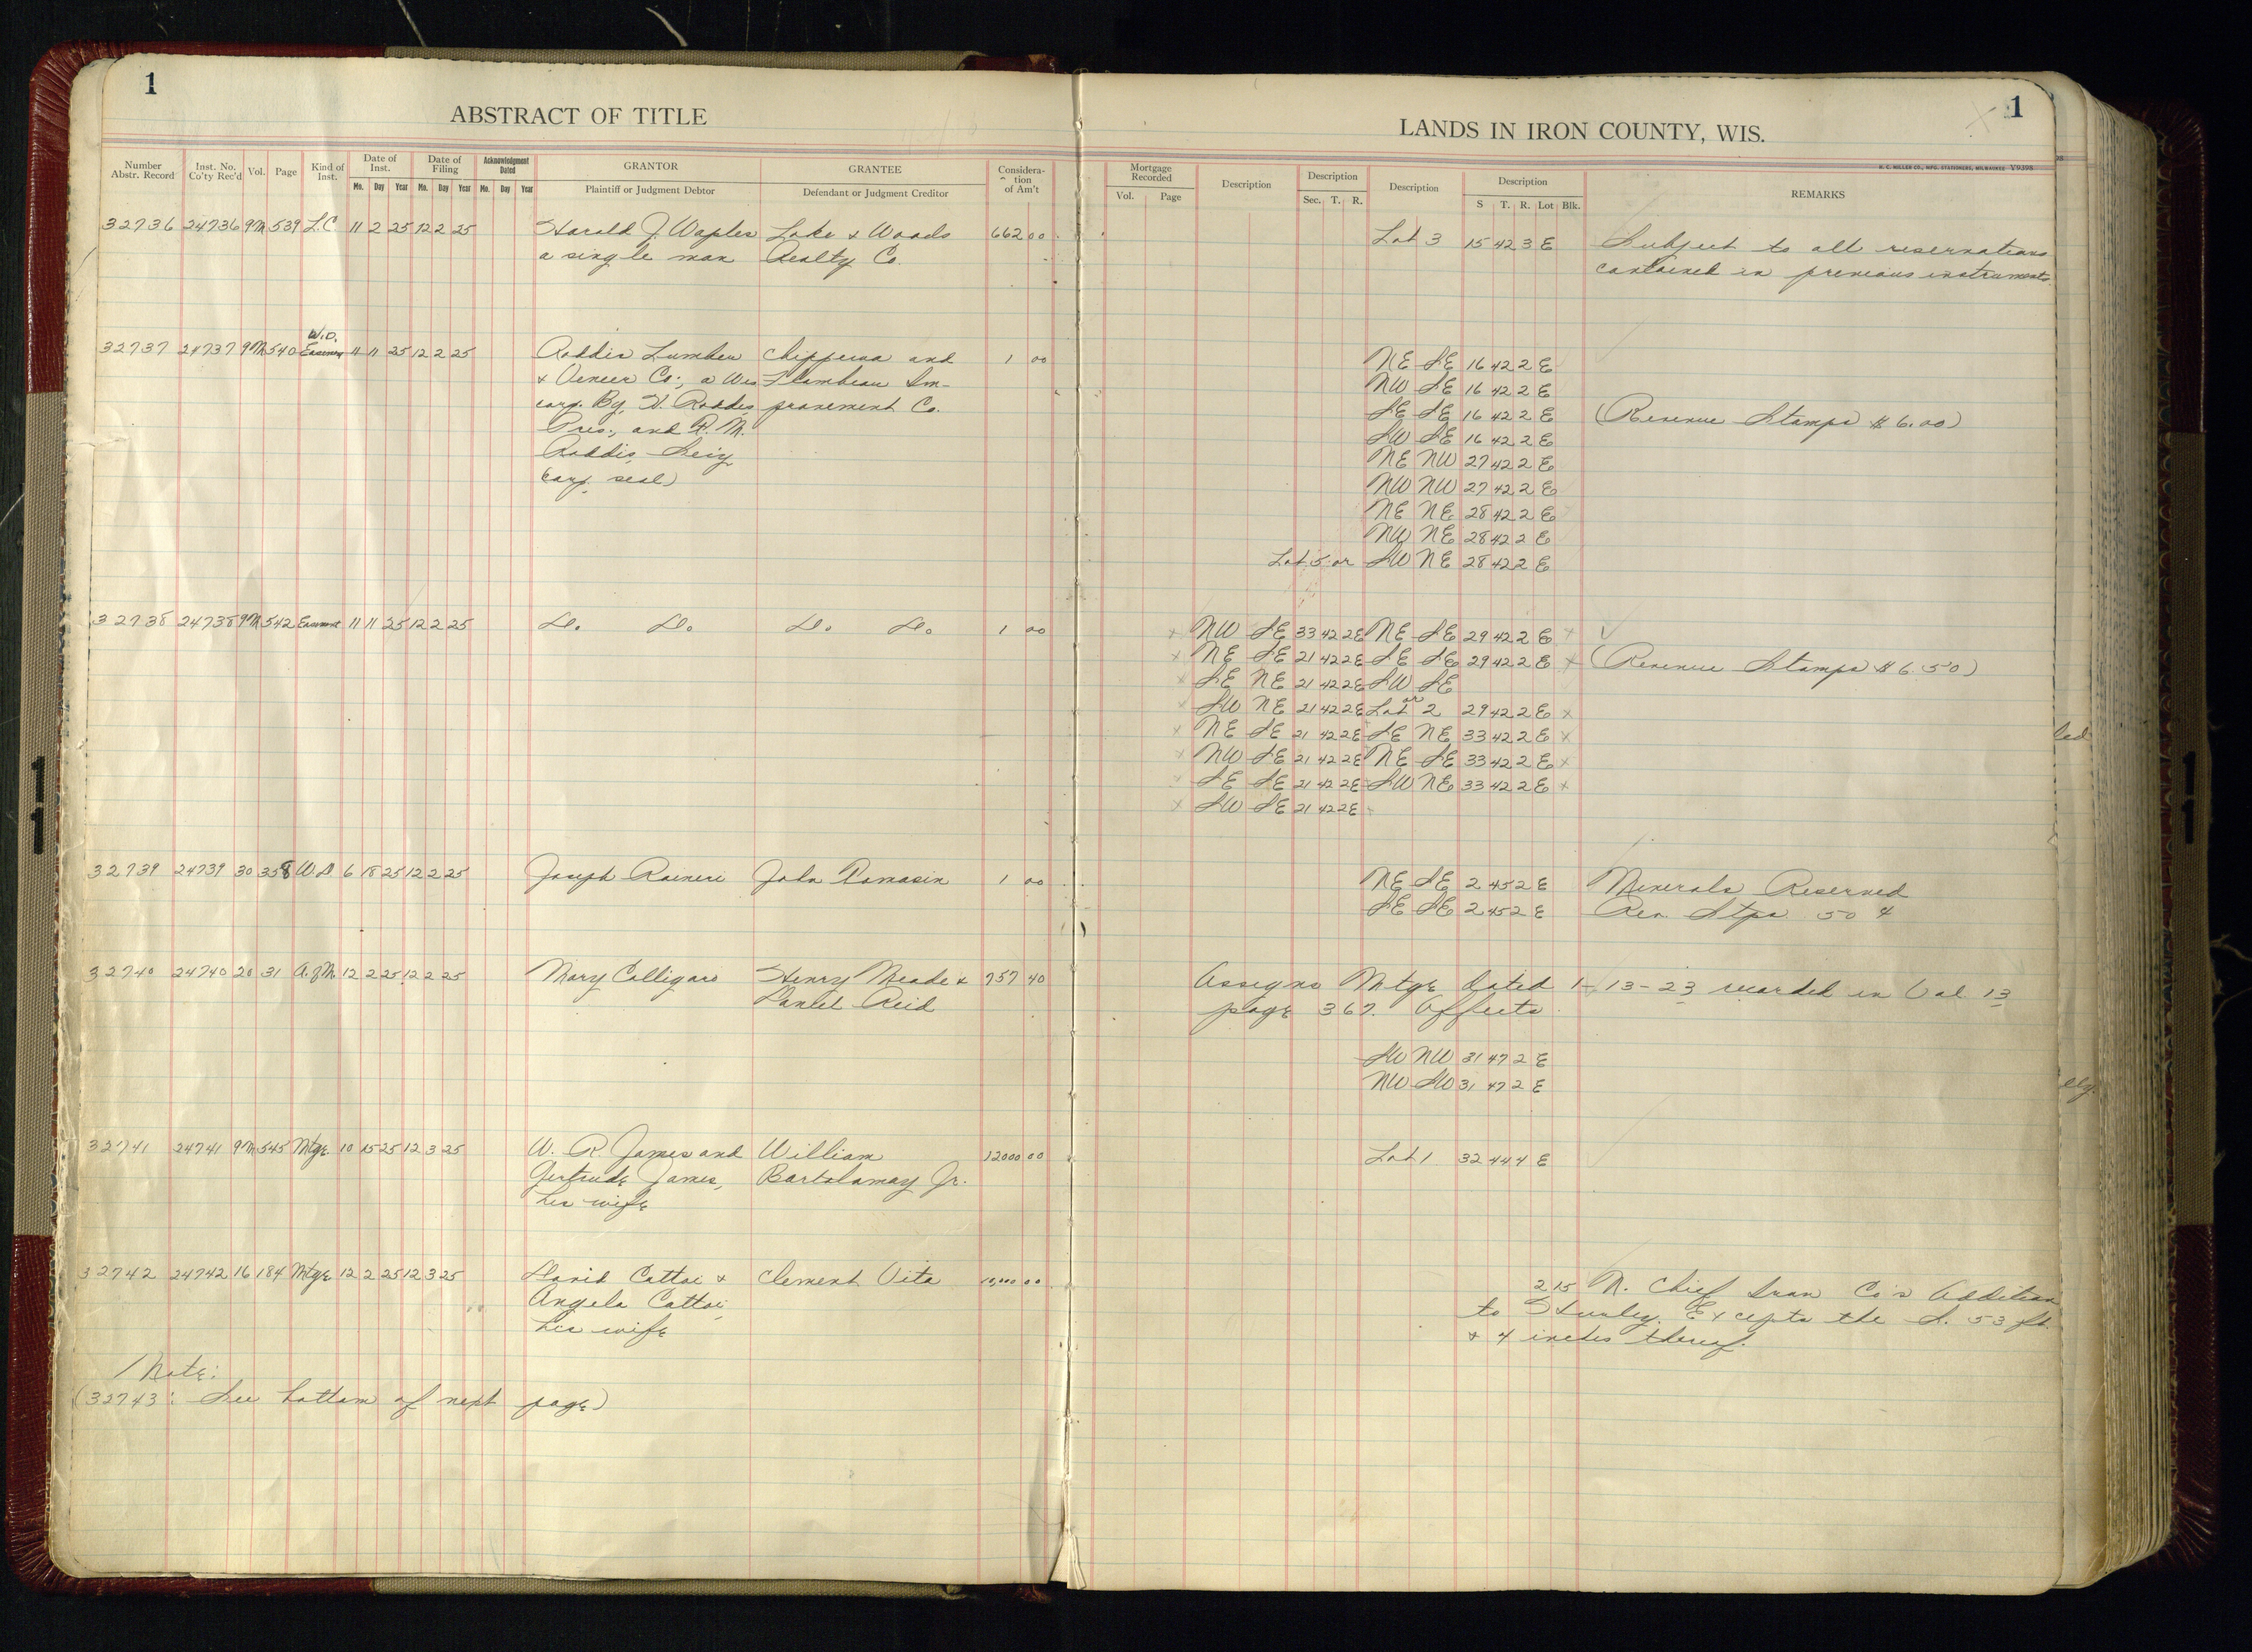 1
ABSTRACT OF TITLE
Number Abstr. Record
Inst. No. Co'ty Rec'd
Vol.
Page
Kind of Inst.
Date of Inst.
Mo. Day Year
Date of Filing
Mo. Day Year
Acknowledgment Dated
Mo. Day Year
GRANTOR
Plaintiff or Judgment Debtor
GRANTEE
Defendant or Judgment Creditor
Considera-tion of Am't
32736 24736 9M 539 L.C 11 2 25 12 2 25 Harold J. Waples Lake & Woods 662 00
a single man Realty Co.
W.D.
32737 24737 9M 540 11 11 25 12 2 25 Roddis Lumber Chippewa and 1 00
& Veneer Co., a Wis Flambeau Im-
corp. By, H. Roddis provement Co.
Pres., and R. M.
Roddis, Sec'y
Corp. seal)
32738 24738 9M 542 Easement 11 11 25 12 2 25 Do. Do. Do. Do. 1 00
32739 24739 30 358 W.D 6 18 25 12 2 25 Joseph Raineri John Tomasin 1 00
32740 24740 20 31 A.of M. 12 2 25 12 2 25 Mary Calligaro Henry Meade & 757 40
Daniel Reid
32741 24741 9M 545 Mtge. 10 15 25 12 3 25 W. R. James and William 12000 00
Gertrude James, Bartolomay Jr.
his wife
32742 24742 16 184 Mtge 12 2 25 12 3 25 David Cattoi & Clement Vita 10,000 00
Angela Cattoi,
his wife
Note:
(32743: See bottom of next page)
1
LANDS IN IRON COUNTY, WIS.
H. C. MILLER CO., MFG. STATIONERS, MILWAUKEE V9398
Mortgage Recorded
Vol. Page
Description
Description
Sec. T. R.
Description
Description
S T. R. Lot Blk.
REMARKS
Lot 3 15 42 3 E Subject to all reservations
contained in previous instruments
NE SE 16 42 2 E
NW SE 16 42 2 E
SE SE 16 42 2 E (Revenue Stamps $6.00)
SW SE 16 42 2 E
NE NW 27 42 2 E
NW NW 27 42 2 E
NE NE 28 42 2 E
NW NE 28 42 2 E
Lot 5 or SW NE 28 42 2 E
x NW SE 33 42 2E NE SE 29 42 2 E x
x NE SE 21 42 2E SE SE 29 42 2 E x (Revenue Stamps $6.50)
x SE NE 21 42 2E SW SE
x SW NE 21 42 2E Lot or 2 29 42 2 E x
x NE SE 21 42 2E SE NE 33 42 2 E x
x NW SE 21 42 2E NE SE 33 42 2 E x
x SE SE 21 42 2E SW NE 33 42 2 E x
x SW SE 21 42 2E
NE SE 2 45 2 E Minerals Reserved
SE SE 2 45 2 E Rev. Stps 50 ¢
Assigns Mtge Dated 1-13-23 recorded in Vol 13
page 367. Affects
SW NW 31 47 2 E
NW SW 31 47 2 E
Lot 1 32 44 4 E
2 15 N. Chief Iron Co's Addition
to Hurley. Excepts the S. 53 ft.
& 4 inches thereof.